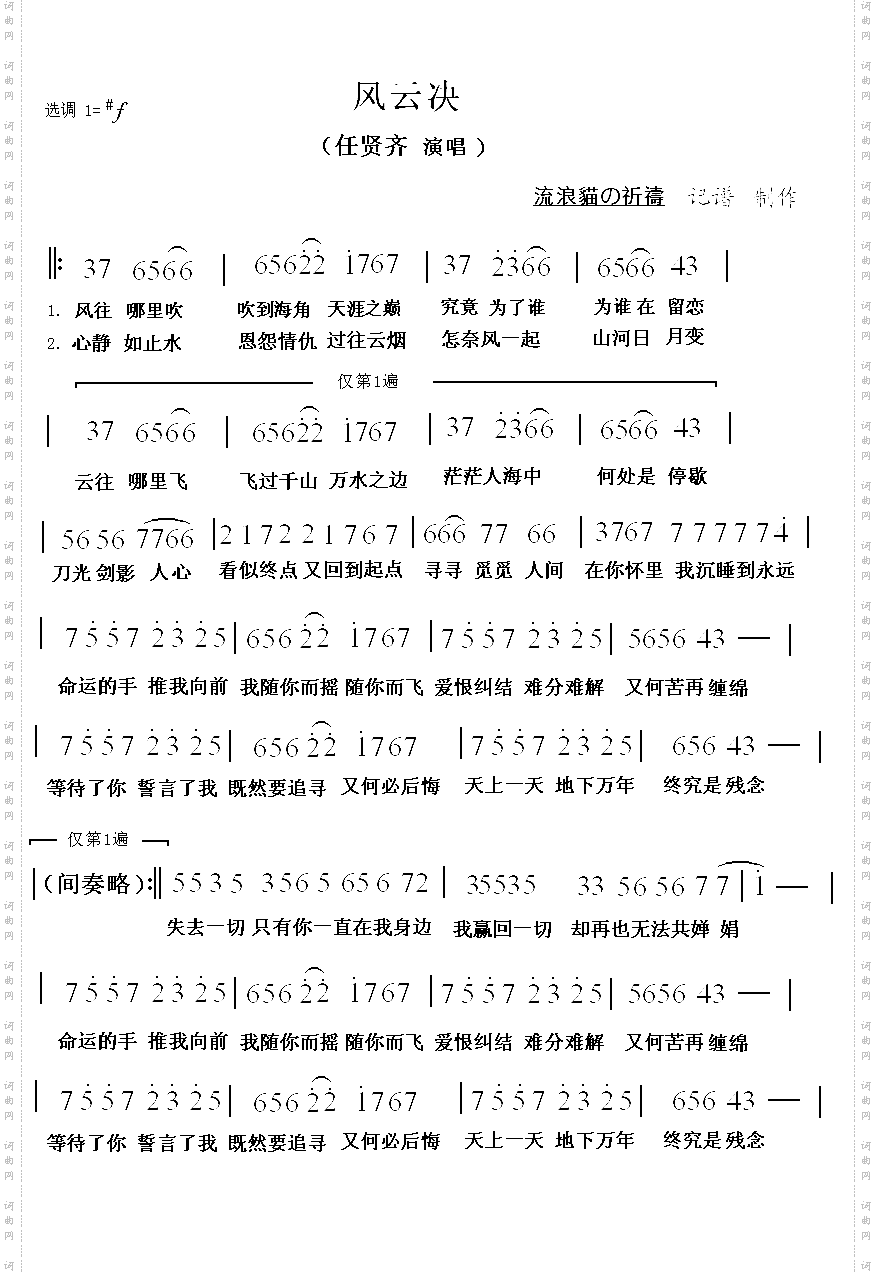 风云决
选调 1=#f
（任贤齐 演唱）
流浪貓の祈禱 记谱 制作
‖: 37 6566 | 65622 1767 | 37 2366 | 6566 43 |
1. 风往 哪里吹 吹到海角 天涯之巅 究竟 为了谁 为谁在 留恋
2. 心静 如止水 恩怨情仇 过往云烟 怎奈风一起 山河日 月变
仅第1遍
| 37 6566 | 65622 1767 | 37 2366 | 6566 43 |
云往 哪里飞 飞过千山 万水之边 茫茫人海中 何处是 停歇
| 56 56 7766 | 2 1 7 2 2 1 7 6 7 | 666 77 66 | 3767 7 7 7 7 7 4 |
刀光 剑影 人心 看似终点 又回到起点 寻寻 觅觅 人间 在你怀里 我沉睡到永远
| 7 5 5 7 2 3 2 5 | 65622 1767 | 7 5 5 7 2 3 2 5 | 5656 43 — |
命运的手 推我向前 我随你而摇 随你而飞 爱恨纠结 难分难解 又何苦再 缠绵
| 7 5 5 7 2 3 2 5 | 65622 1767 | 7 5 5 7 2 3 2 5 | 656 43 — |
等待了你 誓言了我 既然要追寻 又何必后悔 天上一天 地下万年 终究是残念
仅第1遍
|（间奏略）:‖ 55 3 5 3 5 6 5 65 6 72 | 35535 33 56 56 7 7 | 1 — |
失去一切 只有你一直在我身边 我赢回一切 却再也无法共婵 娟
| 7 5 5 7 2 3 2 5 | 65622 1767 | 7 5 5 7 2 3 2 5 | 5656 43 — |
命运的手 推我向前 我随你而摇 随你而飞 爱恨纠结 难分难解 又何苦再 缠绵
| 7 5 5 7 2 3 2 5 | 65622 1767 | 7 5 5 7 2 3 2 5 | 656 43 — |
等待了你 誓言了我 既然要追寻 又何必后悔 天上一天 地下万年 终究是残念